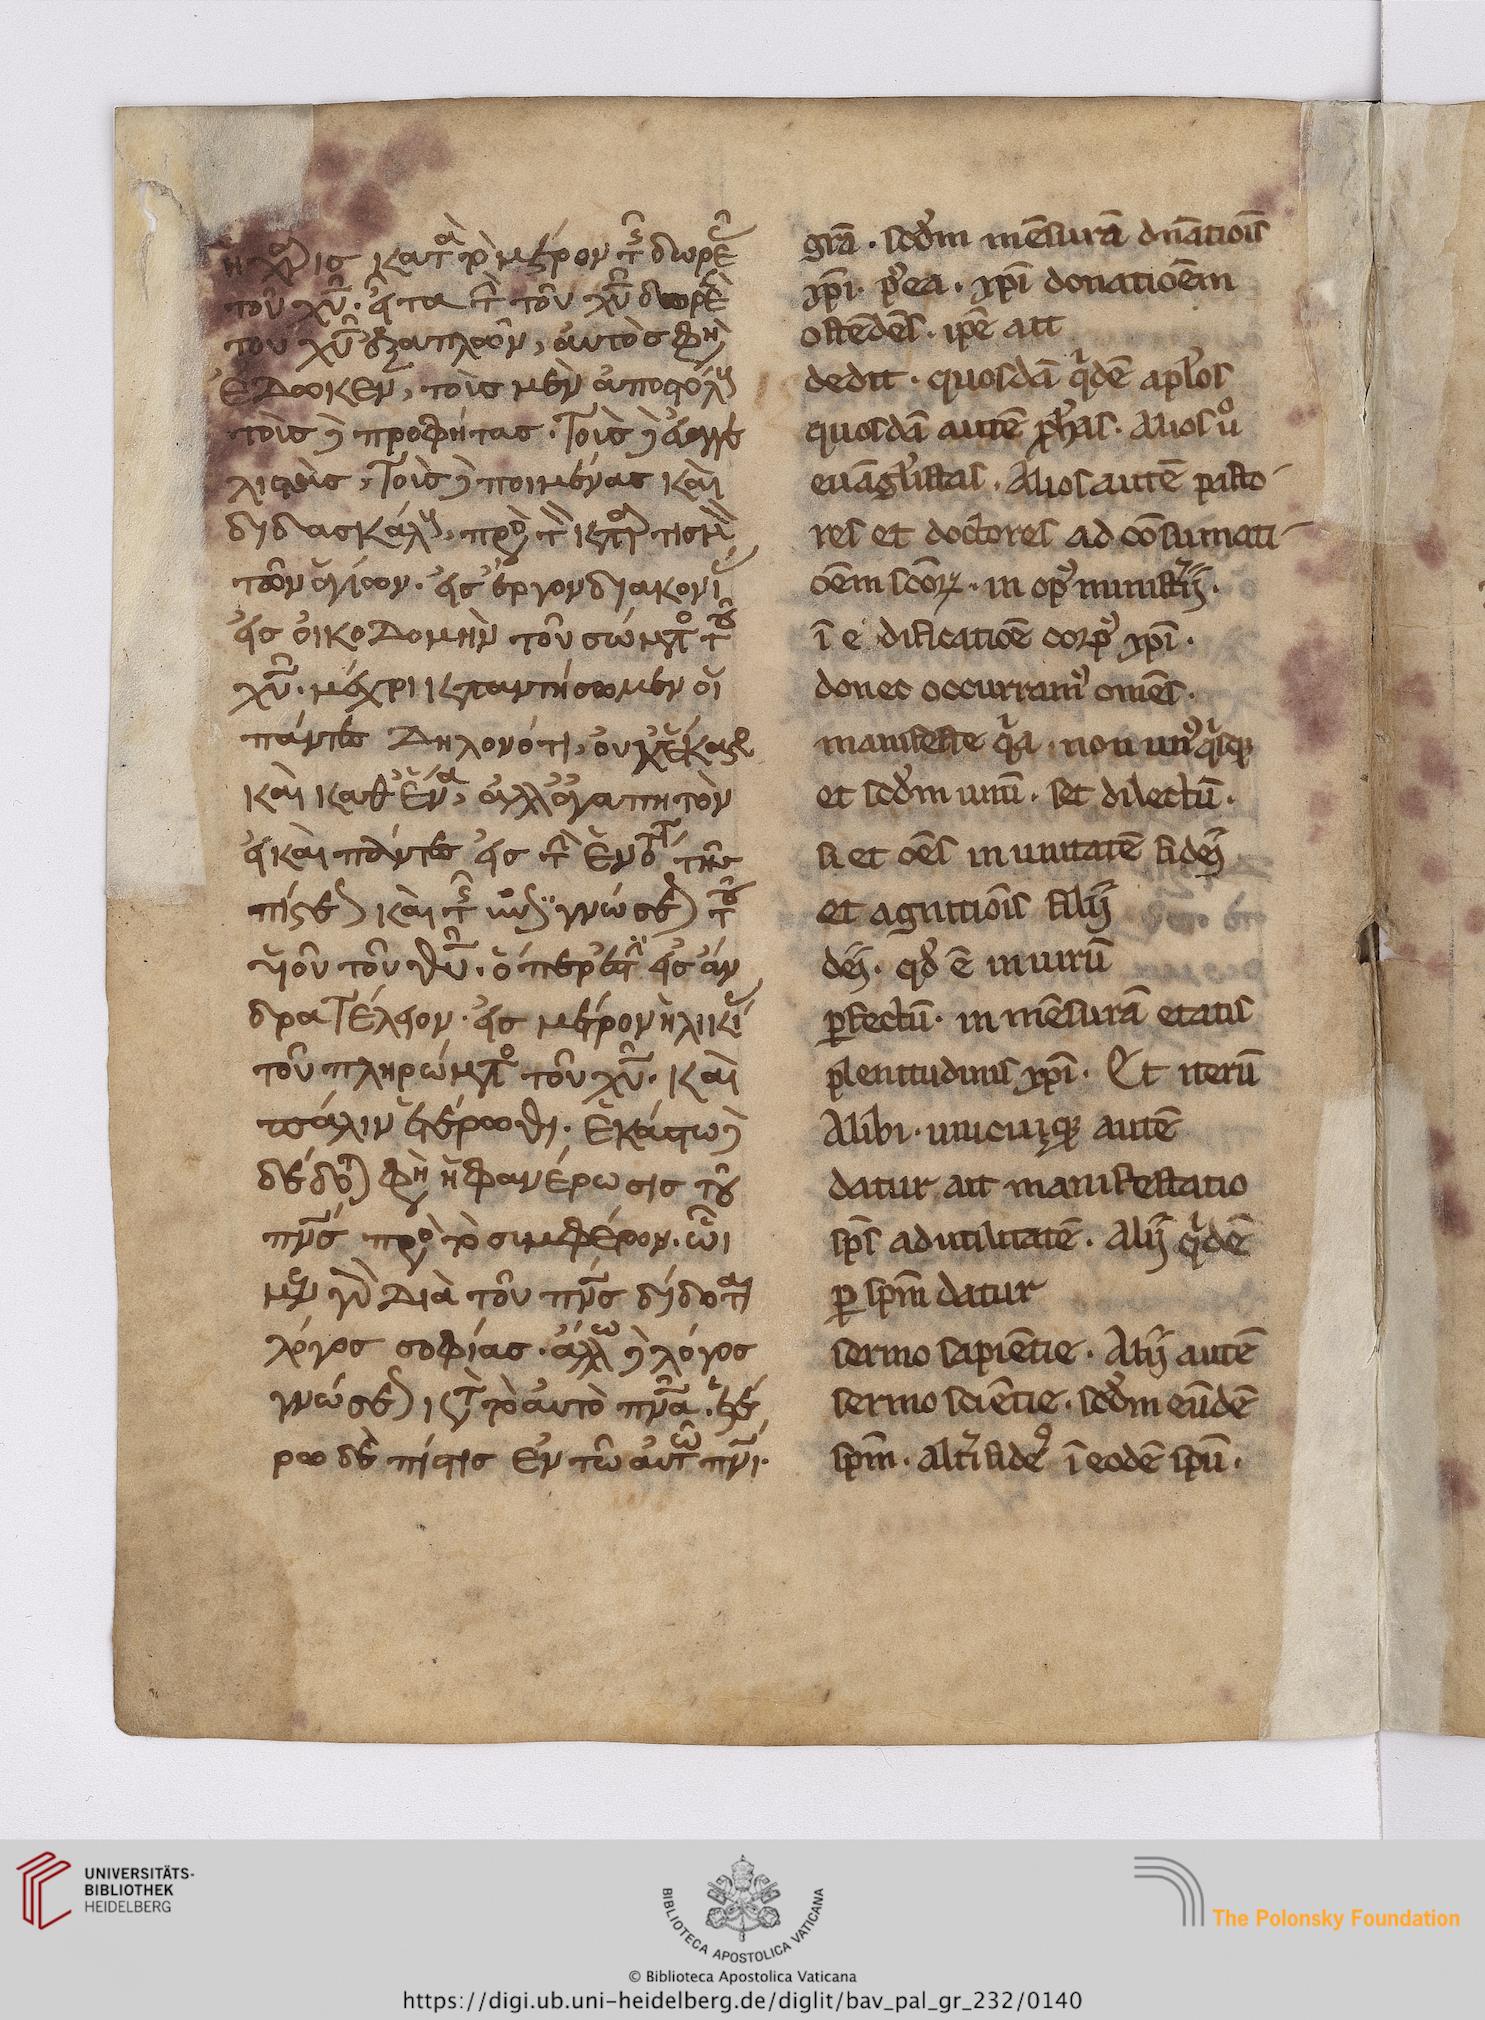 ἡ χάρις κατὰ τὸ μέτρον τῆς δωρεᾶς
τοῦ χῦ. εἶτα τὴν τοῦ χῦ δωρεὰν
τοῦ χῦ ἐξαπλῶν, αὐτὸς φησὶ
ἔδωκεν, τοὺς μὲν ἀποστόλους
τοὺς δὲ προφήτας. τοὺς δὲ εὐαγγε
λιστὰς, τοὺς δὲ ποιμένας καὶ
διδασκάλους, πρὸς τὸν καταρτισμὸν
τῶν ἁγίων. εἰς ἔργον διακονίας
εἰς οἰκοδομὴν τοῦ σώματος τοῦ
χῦ. μέχρι καταντήσωμεν οἱ
πάντες δηλονότι, οὐχ ἕκαστος
καὶ καθ' ἕνα, ἀλλ' ἀγαπητὸν
εἰ καὶ πάντες εἰς τὴν ἑνότητα τῆς
πίστεως καὶ τῆς ἐπιγνώσεως τοῦ
υἱοῦ τοῦ θῦ. ὅπερ ἐστὶν εἰς ἄν
δρα τέλειον. εἰς μέτρον ἡλικίας
τοῦ πληρώματος τοῦ χῦ. καὶ
πάλιν ἑτέρωθι. ἑκάστω δὲ
δέδοται φησὶν ἡ φανέρωσις τοῦ
πνς πρὸς τὸ συμφέρον. ὧι
μὲν γὰρ διὰ τοῦ πνς δίδοται
λόγος σοφίας. ἄλλω δὲ λόγος
γνώσεως κατὰ τὸ αὐτὸ πνα. ἑτέ
ρω δὲ πίστις ἐν τῶ αὐτῶ πνι.
gr̄a . scdm mēsurā dn̄atiōis
xpī . p̄ea . xpī donatiōem
ostēdēs . ipē ait
dedit . quosdā q̄dē aplos
quosdā autē pphas . Alios ū
euāglistas . Alios autē pasto-
res et doctores ad cōsumati-
ōem scōrꝝ . in opꝰ ministrij .
ī edificatiōe corpꝰ xpī .
donec occurramꝰ om̄es .
manifeste q̄a . non unꝰqisqꝫ
et scdm unū . set dilectū .
si et oēs in unitatē fidej
et agnitiōis filij
dej . qd ē in uirū
ꝑfectū . in mēsurā etatis
plenitudinis xpī . Et iterū
Alibi . unicuiqꝫ autē
datur ait manifestatio
sp̄s ad utilitatē . Alij q̄dē
ꝑ sp̄m datur
sermo sapiētie . Alij autē
sermo sciētie . scdm eūdē
sp̄m . altī fidesꝰ ī eodē spū .
UNIVERSITÄTS-
BIBLIOTHEK
HEIDELBERG
BIBLIOTECA APOSTOLICA VATICANA
The Polonsky Foundation
© Biblioteca Apostolica Vaticana
https://digi.ub.uni-heidelberg.de/diglit/bav_pal_gr_232/0140